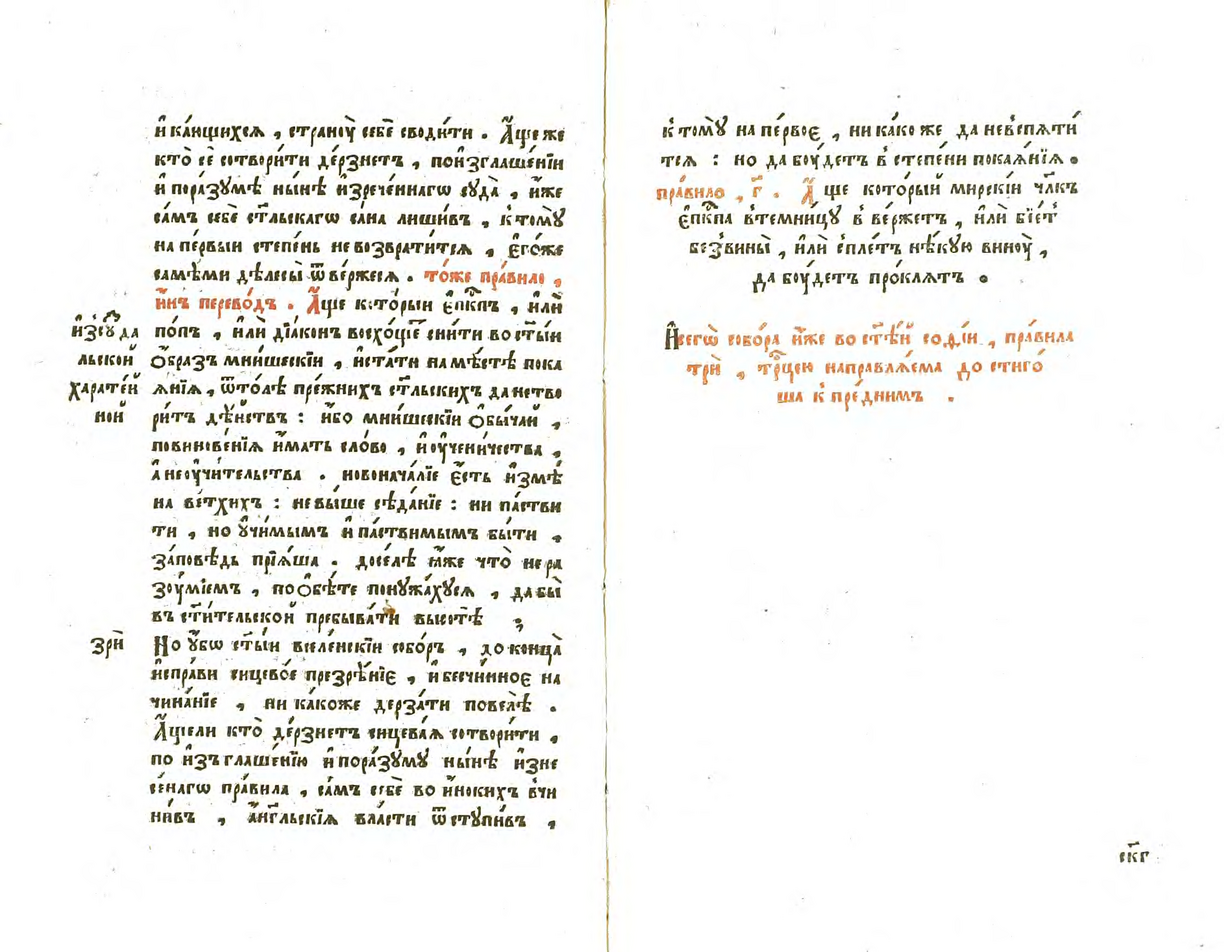 и҆ ка́ющихсѧ , страноу̀ себѐ своди́ти . А҆́ще же
кто̀ сѐ сотвори́ти де́рзнетъ , поизглаше́нїи
и҆ пора́зумѣ ны́нѣ и҆зрече́ннагѡ суда̀ , и҆́же
са́мъ себѐ ст҃льскагѡ са́на лиши́въ , к томꙋ̀
на пе́рвыи степе́нь не возврати́тсѧ , є҆гѡ́же
самѣ́ми дѣлесы̀ ѿве́ржесѧ . то́же пра́вило ,
и҆́нъ перево́дъ . А҆́ще кото́рыи є҆пⷭ҇кпъ , и҆лѝ
по́пъ , и҆лѝ дїа́конъ восхо́щетъ сни́ти во ст҃ы́и
ѻ҆́бразъ мни́шескїи , и҆ ста́ти на мѣ́стѣ пока
ѧ́нїѧ , ѿто́лѣ пре́жнихъ ст҃льскихъ да не тво
ри́тъ дѣ́йствъ : и҆́бо мни́шескїи ѻ҆бы́чаи ,
повинове́нїѧ и҆́мать сло́во , и҆ оу҆чени́чества ,
а҆ не оу҆чи́тельства . новонача́лїе є҆́сть и҆змѣ́
на ве́тхихъ : не вы́ше сѣда́нїе : ни па́стви
ти , но ᲂу҆чи́мымъ и҆ па́ствимымъ бы́ти ,
за́повѣдь прїѧ́ша . досе́лѣ ꙗ҆́же что̀ не ра
зоумі́емъ , по ѻ҆бѣ́те понꙋжа́хꙋсѧ , да бы
въ ст҃и́тельской пребыва́ти высотѣ̀ ;
Но ᲂу҆́бѡ ст҃ы́и вселе́нскїи собо́ръ , до конца̀
и҆спра́ви сицево́е презрѣ́нїє , и҆ бесчи́нноє на
чина́нїе , ни ка́коже дерза́ти повелѣ̀ .
А҆́щели кто̀ де́рзнетъ сицева́ѧ сотвори́ти ,
по и҆зъглаше́нїю и҆ пора́зꙋмꙋ ны́нѣ и҆зне
се́нагѡ пра́вила , са́мъ себѐ во и҆́ноких​ъ вчи
ни́въ , а҆́нг҃льскїѧ вла́сти ѿстꙋпи́въ ,
и҆зсоу́да
льской
харате́й
ной
зрѝ
к томꙋ̀ на пе́рвоє , ни ка́коже да не вспѧти́
тсѧ : но да боу́детъ в степе́ни покаѧ́нїѧ .
пра́вило , г҃ . А҆́ще кото́рый мирскі́и чл҃къ
є҆пⷭ҇кпа в темни́цꙋ в ве́ржетъ , и҆лѝ бїе́тъ
без вины̀ , и҆лѝ сплете́тъ нѣ́кꙋю виноу̀ ,
да боу́детъ про́клѧтъ .
И҆ сегѡ̀ собо́ра и҆́же во ст҃ѣ́й софі́и , пра́вила
трѝ , тр҃цею направлѧ́ема до стиго́
ша к пре́днимъ .
скг